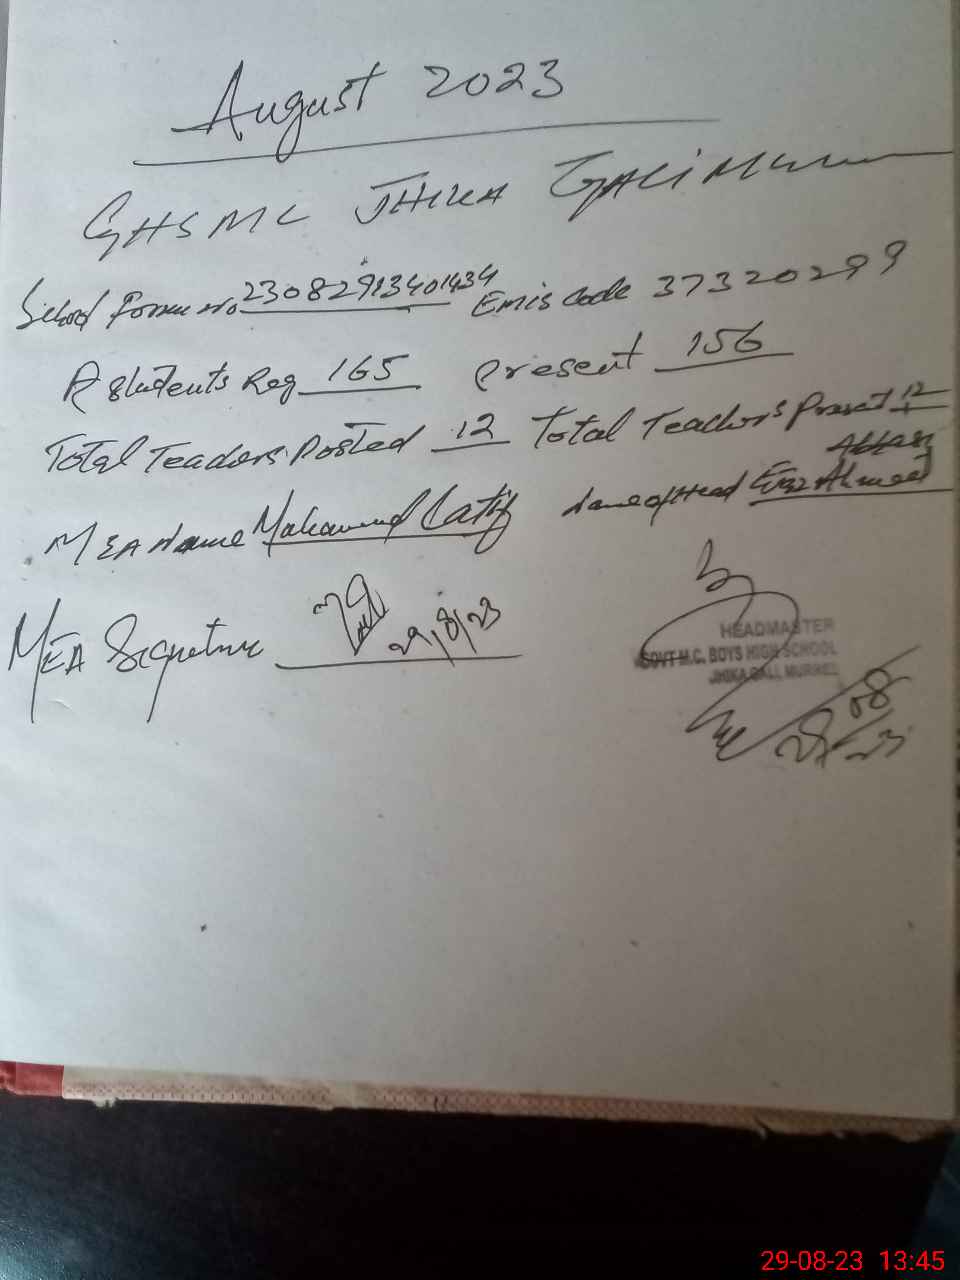 August 2023
GHS MC JHIKA GALI
School Form no 23082913401434 Emis Code 37320299
students Reg 165 present 156
Total Teachers Posted 12 Total Teachers Present 12
Abbasi
MEA Name Mohammad Latif Name of Head Ahmed
MEA Signature 29/8/23
HEADMASTER
GOVT M.C. BOYS HIGH SCHOOL
JHIKA GALI MURREE
29/08
23
29-08-23 13:45